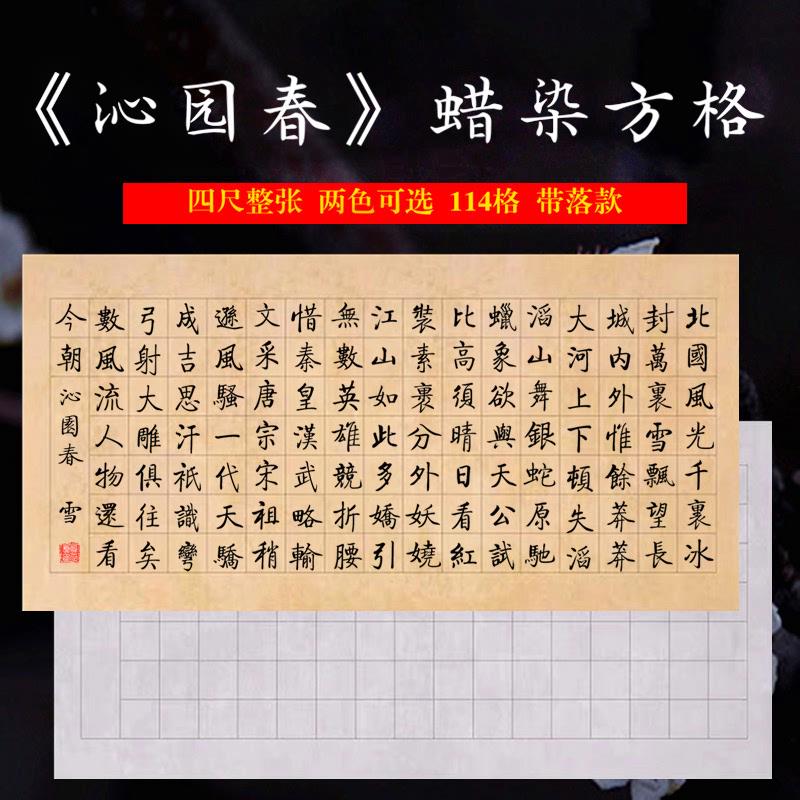 《沁园春》蜡染方格
四尺整张 两色可选 114格 带落款
北國風光千裏冰
封萬裏雪飄望長
城内外惟餘莽莽
大河上下頓失滔
滔山舞銀蛇原馳
蠟象欲與天公試
比高須晴日看紅
裝素裹分外妖嬈
江山如此多嬌引
無數英雄競折腰
惜秦皇漢武略輸
文采唐宗宋祖稍
遜風騷一代天驕
成吉思汗祇識彎
弓射大雕俱往矣
數風流人物還看
今朝 沁園春 雪